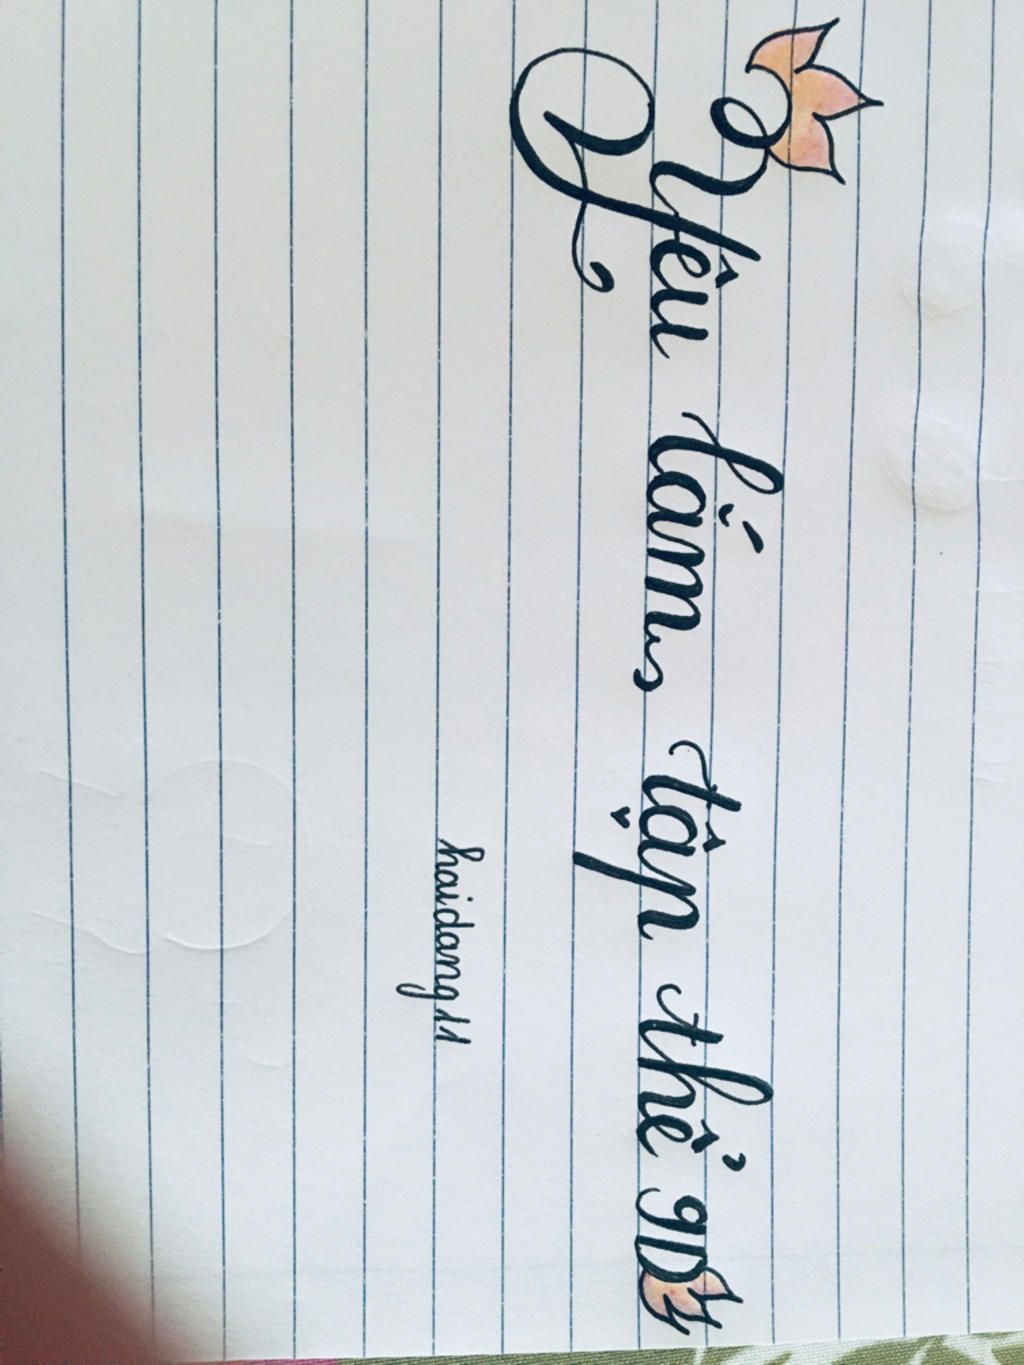 Yêu lắm, tập thể 9D
haidang11